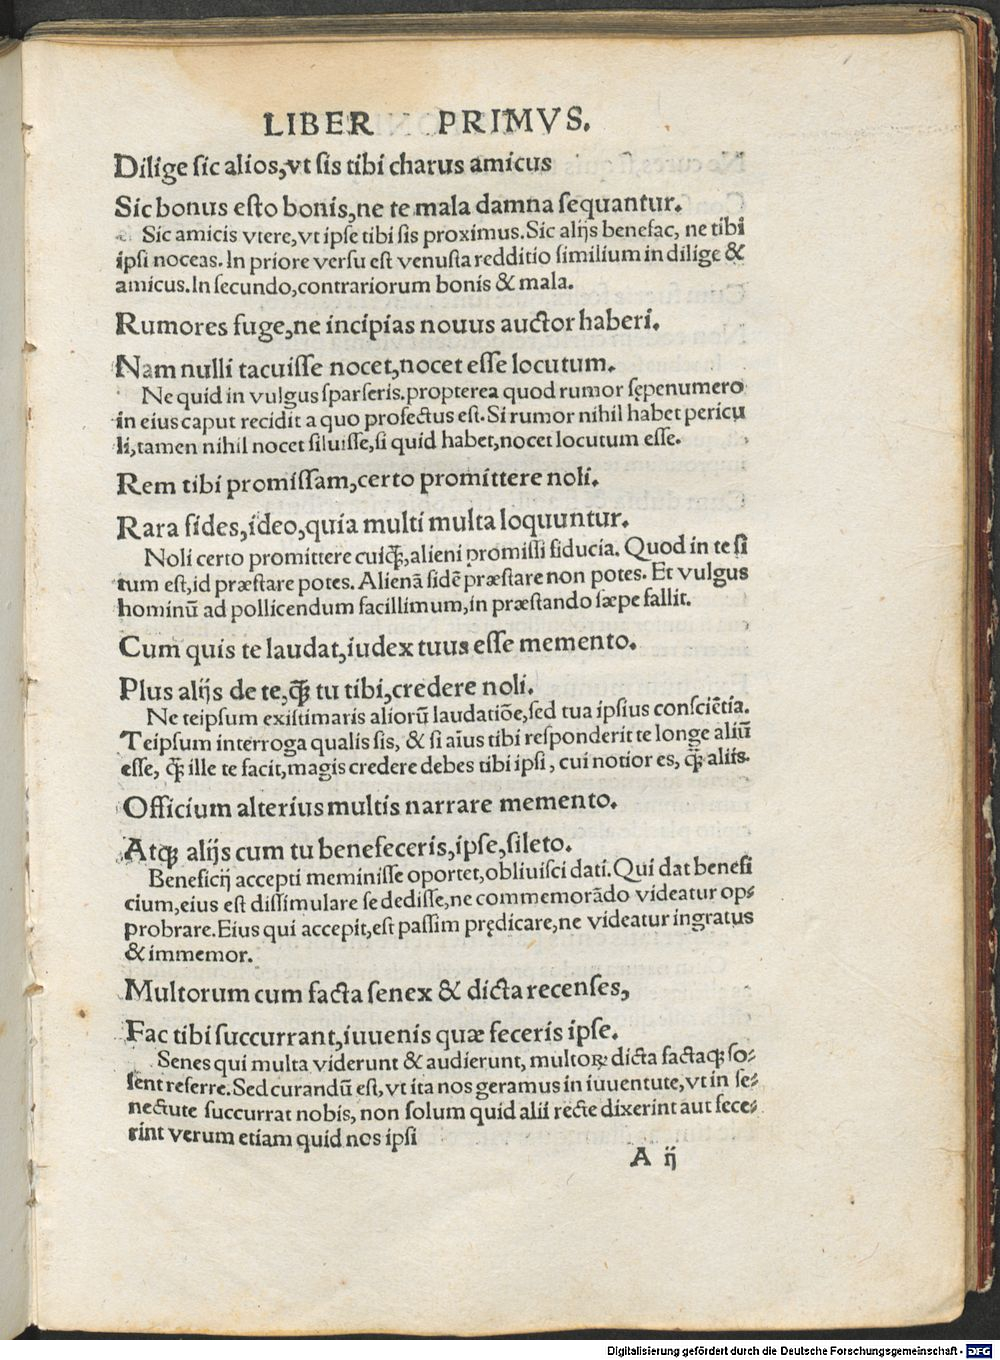 LIBER PRIMVS.
Dilige sic alios, vt sis tibi charus amicus
Sic bonus esto bonis, ne te mala damna sequantur.
Sic amicis vtere, vt ipse tibi sis proximus. Sic alijs benefac, ne tibi
ipsi noceas. In priore versu est venusta redditio similium in dilige &
amicus. In secundo, contrariorum bonis & mala.
Rumores fuge, ne incipias nouus auctor haberi.
Nam nulli tacuisse nocet, nocet esse locutum.
Ne quid in vulgus sparseris. propterea quod rumor sępenumero
in eius caput recidit a quo profectus est. Si rumor nihil habet pericu
li, tamen nihil nocet siluisse, si quid habet, nocet locutum esse.
Rem tibi promissam, certo promittere noli.
Rara fides, ideo, quia multi multa loquuntur.
Noli certo promittere cuiqꝫ, alieni promissi fiducia. Quod in te si
tum est, id præstare potes. Alienā fidē præstare non potes. Et vulgus
hominū ad pollicendum facillimum, in præstando sæpe fallit.
Cum quis te laudat, iudex tuus esse memento.
Plus alijs de te, qꝫ̄ tu tibi, credere noli.
Ne teipsum existimaris aliorū laudatiōe, sed tua ipsius consciētia.
Teipsum interroga qualis sis, & si aīus tibi responderit te longe aliū
esse, qꝫ̄ ille te facit, magis credere debes tibi ipsi, cui notior es, qꝫ̄ aliis.
Officium alterius multis narrare memento.
Atqꝫ alijs cum tu benefeceris, ipse, sileto.
Beneficij accepti meminisse oportet, obliuisci dati. Qui dat benefi
cium, eius est dissimulare se dedisse, ne commemorādo videatur op⸗
probrare. Eius qui accepit, est passim prędicare, ne videatur ingratus
& immemor.
Multorum cum facta senex & dicta recenses,
Fac tibi succurrant, iuuenis quæ feceris ipse.
Senes qui multa viderunt & audierunt, multoꝝ dicta factaqꝫ so⸗
lent referre. Sed curandū est, vt ita nos geramus in iuuentute, vt in se⸗
nectute succurrat nobis, non solum quid alii recte dixerint aut fece⸗
rint verum etiam quid nos ipsi
A ij
Digitalisierung gefördert durch die Deutsche Forschungsgemeinschaft - DFG